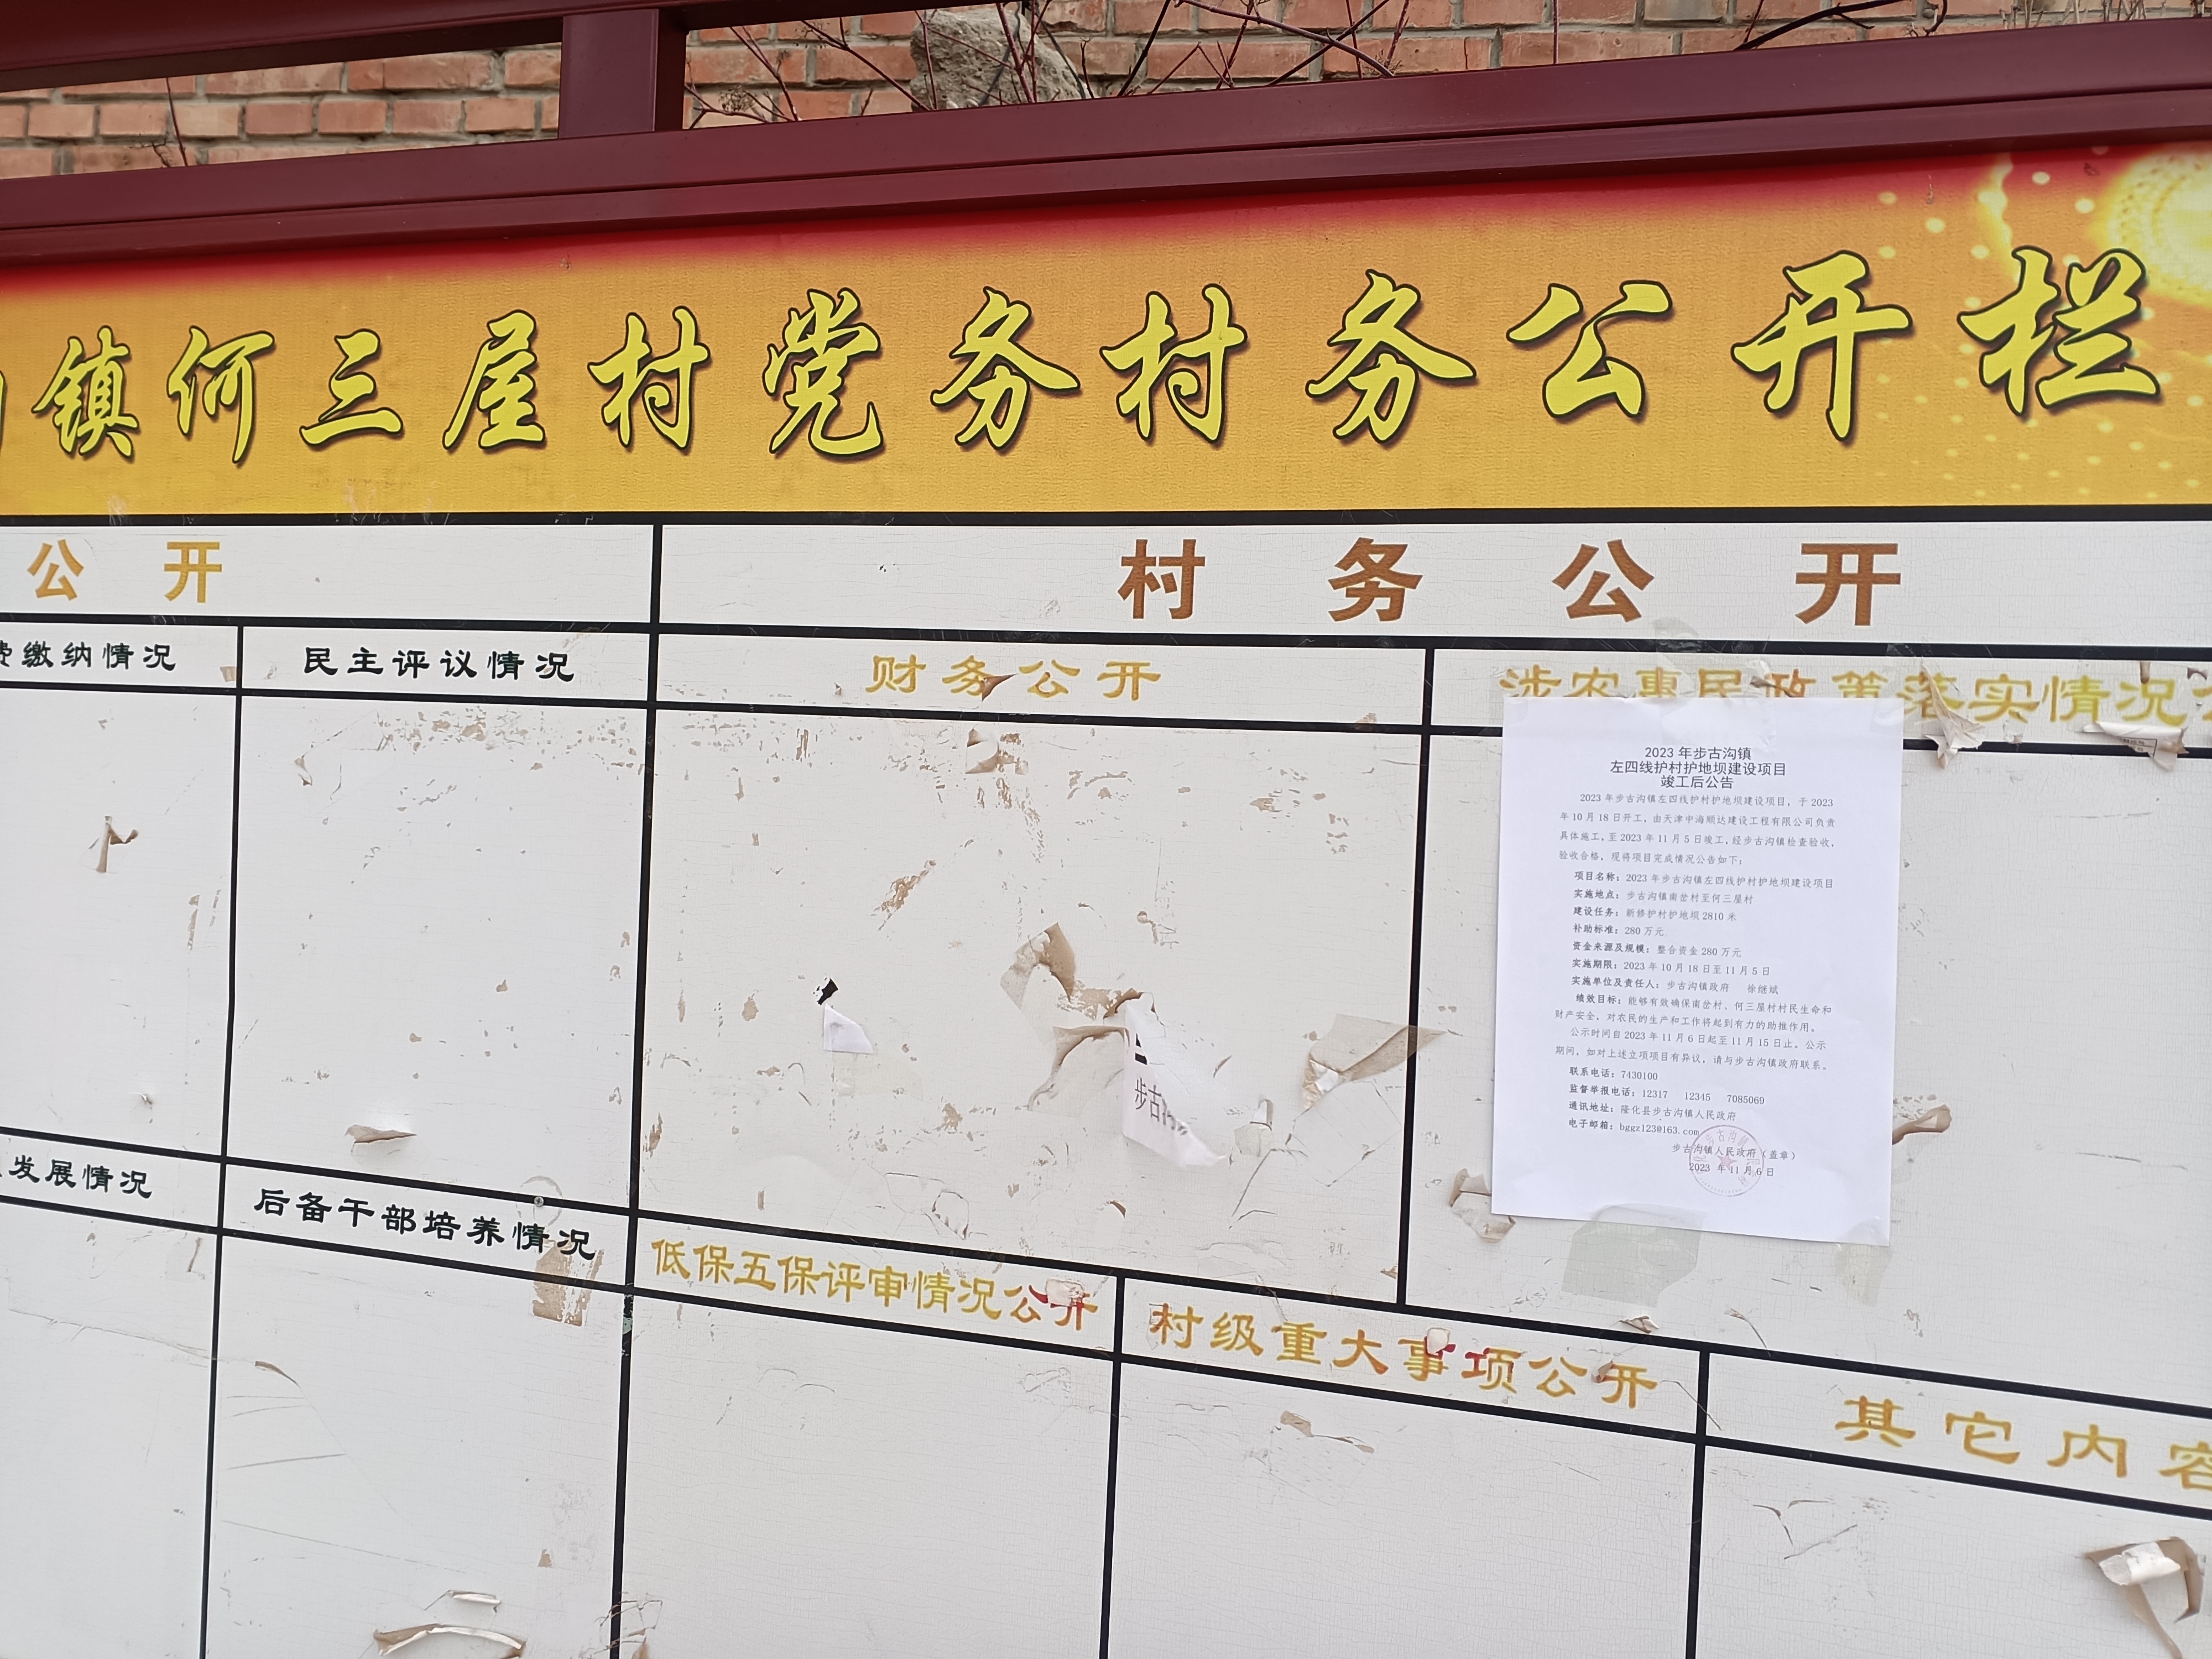 镇何三屋村党务村务公开栏
公开
村务公开
缴纳情况
民主评议情况
财务公开
涉农惠民政策落实情况
2023年步古沟镇
左四线护村护地坝建设项目
竣工后公告
2023年步古沟镇左四线护村护地坝建设项目，于2023
年10月18日开工，由天津中海顺达建设工程有限公司负责
具体施工，至2023年11月5日竣工，经步古沟镇检查验收，
验收合格，现将项目完成情况公告如下：
项目名称：2023年步古沟镇左四线护村护地坝建设项目
实施地点：步古沟镇南岔村至何三屋村
建设任务：新修护村护地坝2810米
补助标准：280万元
资金来源及规模：整合资金280万元
实施期限：2023年10月18日至11月5日
实施单位及责任人：步古沟镇政府 徐继斌
绩效目标：能够有效确保南岔村、何三屋村村民生命和
财产安全，对农民的生产和工作将起到有力的助推作用。
公示时间自2023年11月6日起至11月15日止。公示
期间，如对上述立项项目有异议，请与步古沟镇政府联系。
联系电话：7430100
监督举报电话：12317 12345 7085069
通讯地址：隆化县步古沟镇人民政府
电子邮箱：bggz123@163.com
步古沟镇人民政府（盖章）
2023年11月6日
步古
发展情况
后备干部培养情况
低保五保评审情况公开
村级重大事项公开
其它内容